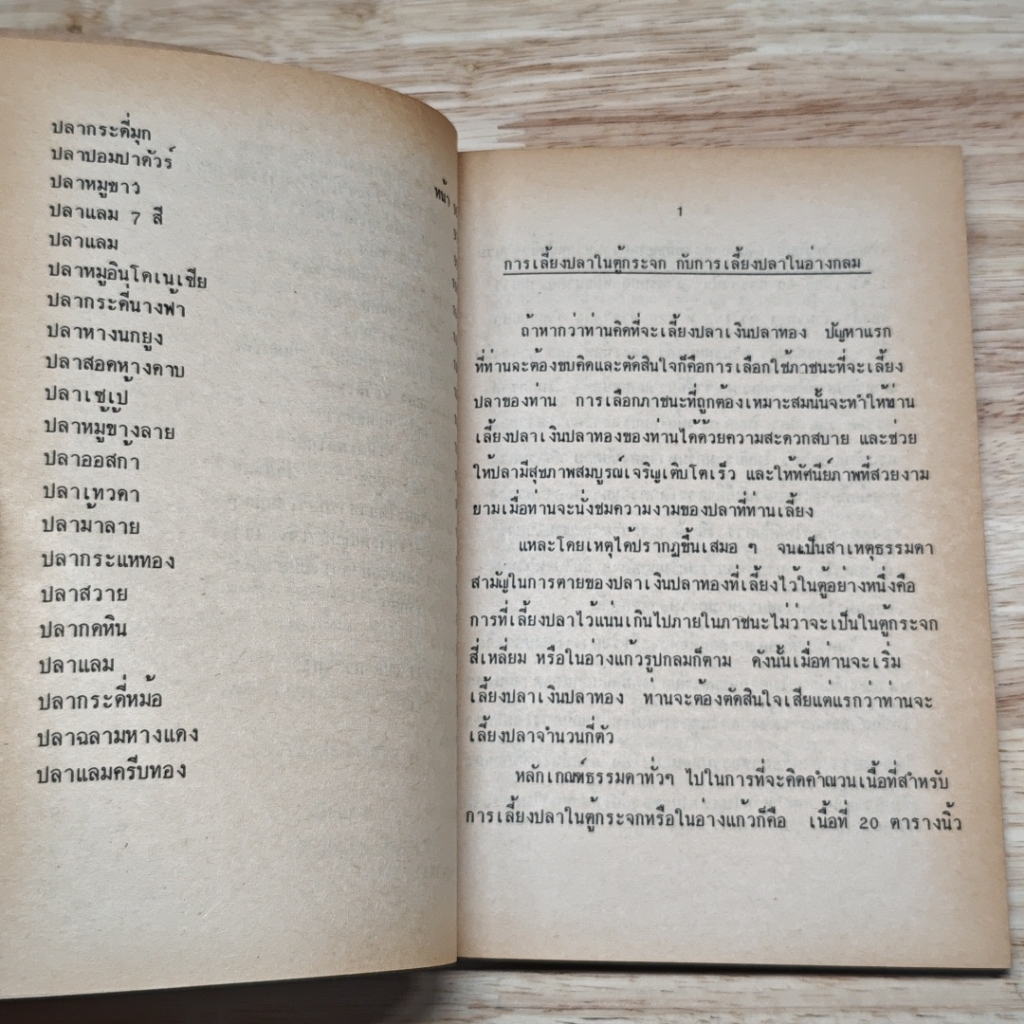 ปลากระดี่มุก
ปลาปอมปาดัวร์
ปลาหมูขาว
ปลาแลม 7 สี
ปลาแลม
ปลาหมูอินโดเนเซีย
ปลากระดี่นางฟ้า
ปลาหางนกยูง
ปลาสอดหางดาบ
ปลาเซเป้
ปลาหมู้ข้างลาย
ปลาออสก้า
ปลาเทวดา
ปลาม้าลาย
ปลากระแหทอง
ปลาสวาย
ปลากดหิน
ปลาแลม
ปลากระดี่หม้อ
ปลาฉลามหางแดง
ปลาแลมครีบทอง
หน้า
1
การเลี้ยงปลาในตู้กระจก กับการเลี้ยงปลาในอ่างกลม
ถ้าหากว่าท่านคิดที่จะเลี้ยงปลาเงินปลาทอง ปัญหาแรก
ที่ท่านจะต้องขบคิดและตัดสินใจก็คือการเลือกใช้ภาชนะที่จะเลี้ยง
ปลาของท่าน การเลือกภาชนะที่ถูกต้องเหมาะสมนั้นจะทำให้ท่าน
เลี้ยงปลาเงินปลาทองของท่านได้ด้วยความสะดวกสบาย และช่วย
ให้ปลามีสุขภาพสมบูรณ์เจริญเติบโตเร็ว และให้ทัศนีย์ภาพที่สวยงาม
ยามเมื่อท่านจะนั่งชมความงามของปลาที่ท่านเลี้ยง
แหละโดยเหตุได้ปรากฏขึ้นเสมอ ๆ จนเป็นสาเหตุธรรมดา
สามัญในการตายของปลาเงินปลาทองที่เลี้ยงไว้ในตู้อย่างหนึ่งคือ
การที่เลี้ยงปลาไว้แน่นเกินไปภายในภาชนะไม่ว่าจะเป็นในตู้กระจก
สี่เหลี่ยม หรือในอ่างแก้วรูปกลมก็ตาม ดังนั้นเมื่อท่านจะเริ่ม
เลี้ยงปลาเงินปลาทอง ท่านจะต้องตัดสินใจเสียแต่แรกว่าท่านจะ
เลี้ยงปลาจำนวนกี่ตัว
หลักเกณฑ์ธรรมดาทั่วๆ ไปในการที่จะคิดคำณวนเนื้อที่สำหรับ
การเลี้ยงปลาในตู้กระจกหรือในอ่างแก้วก็คือ เนื้อที่ 20 ตารางนิ้ว